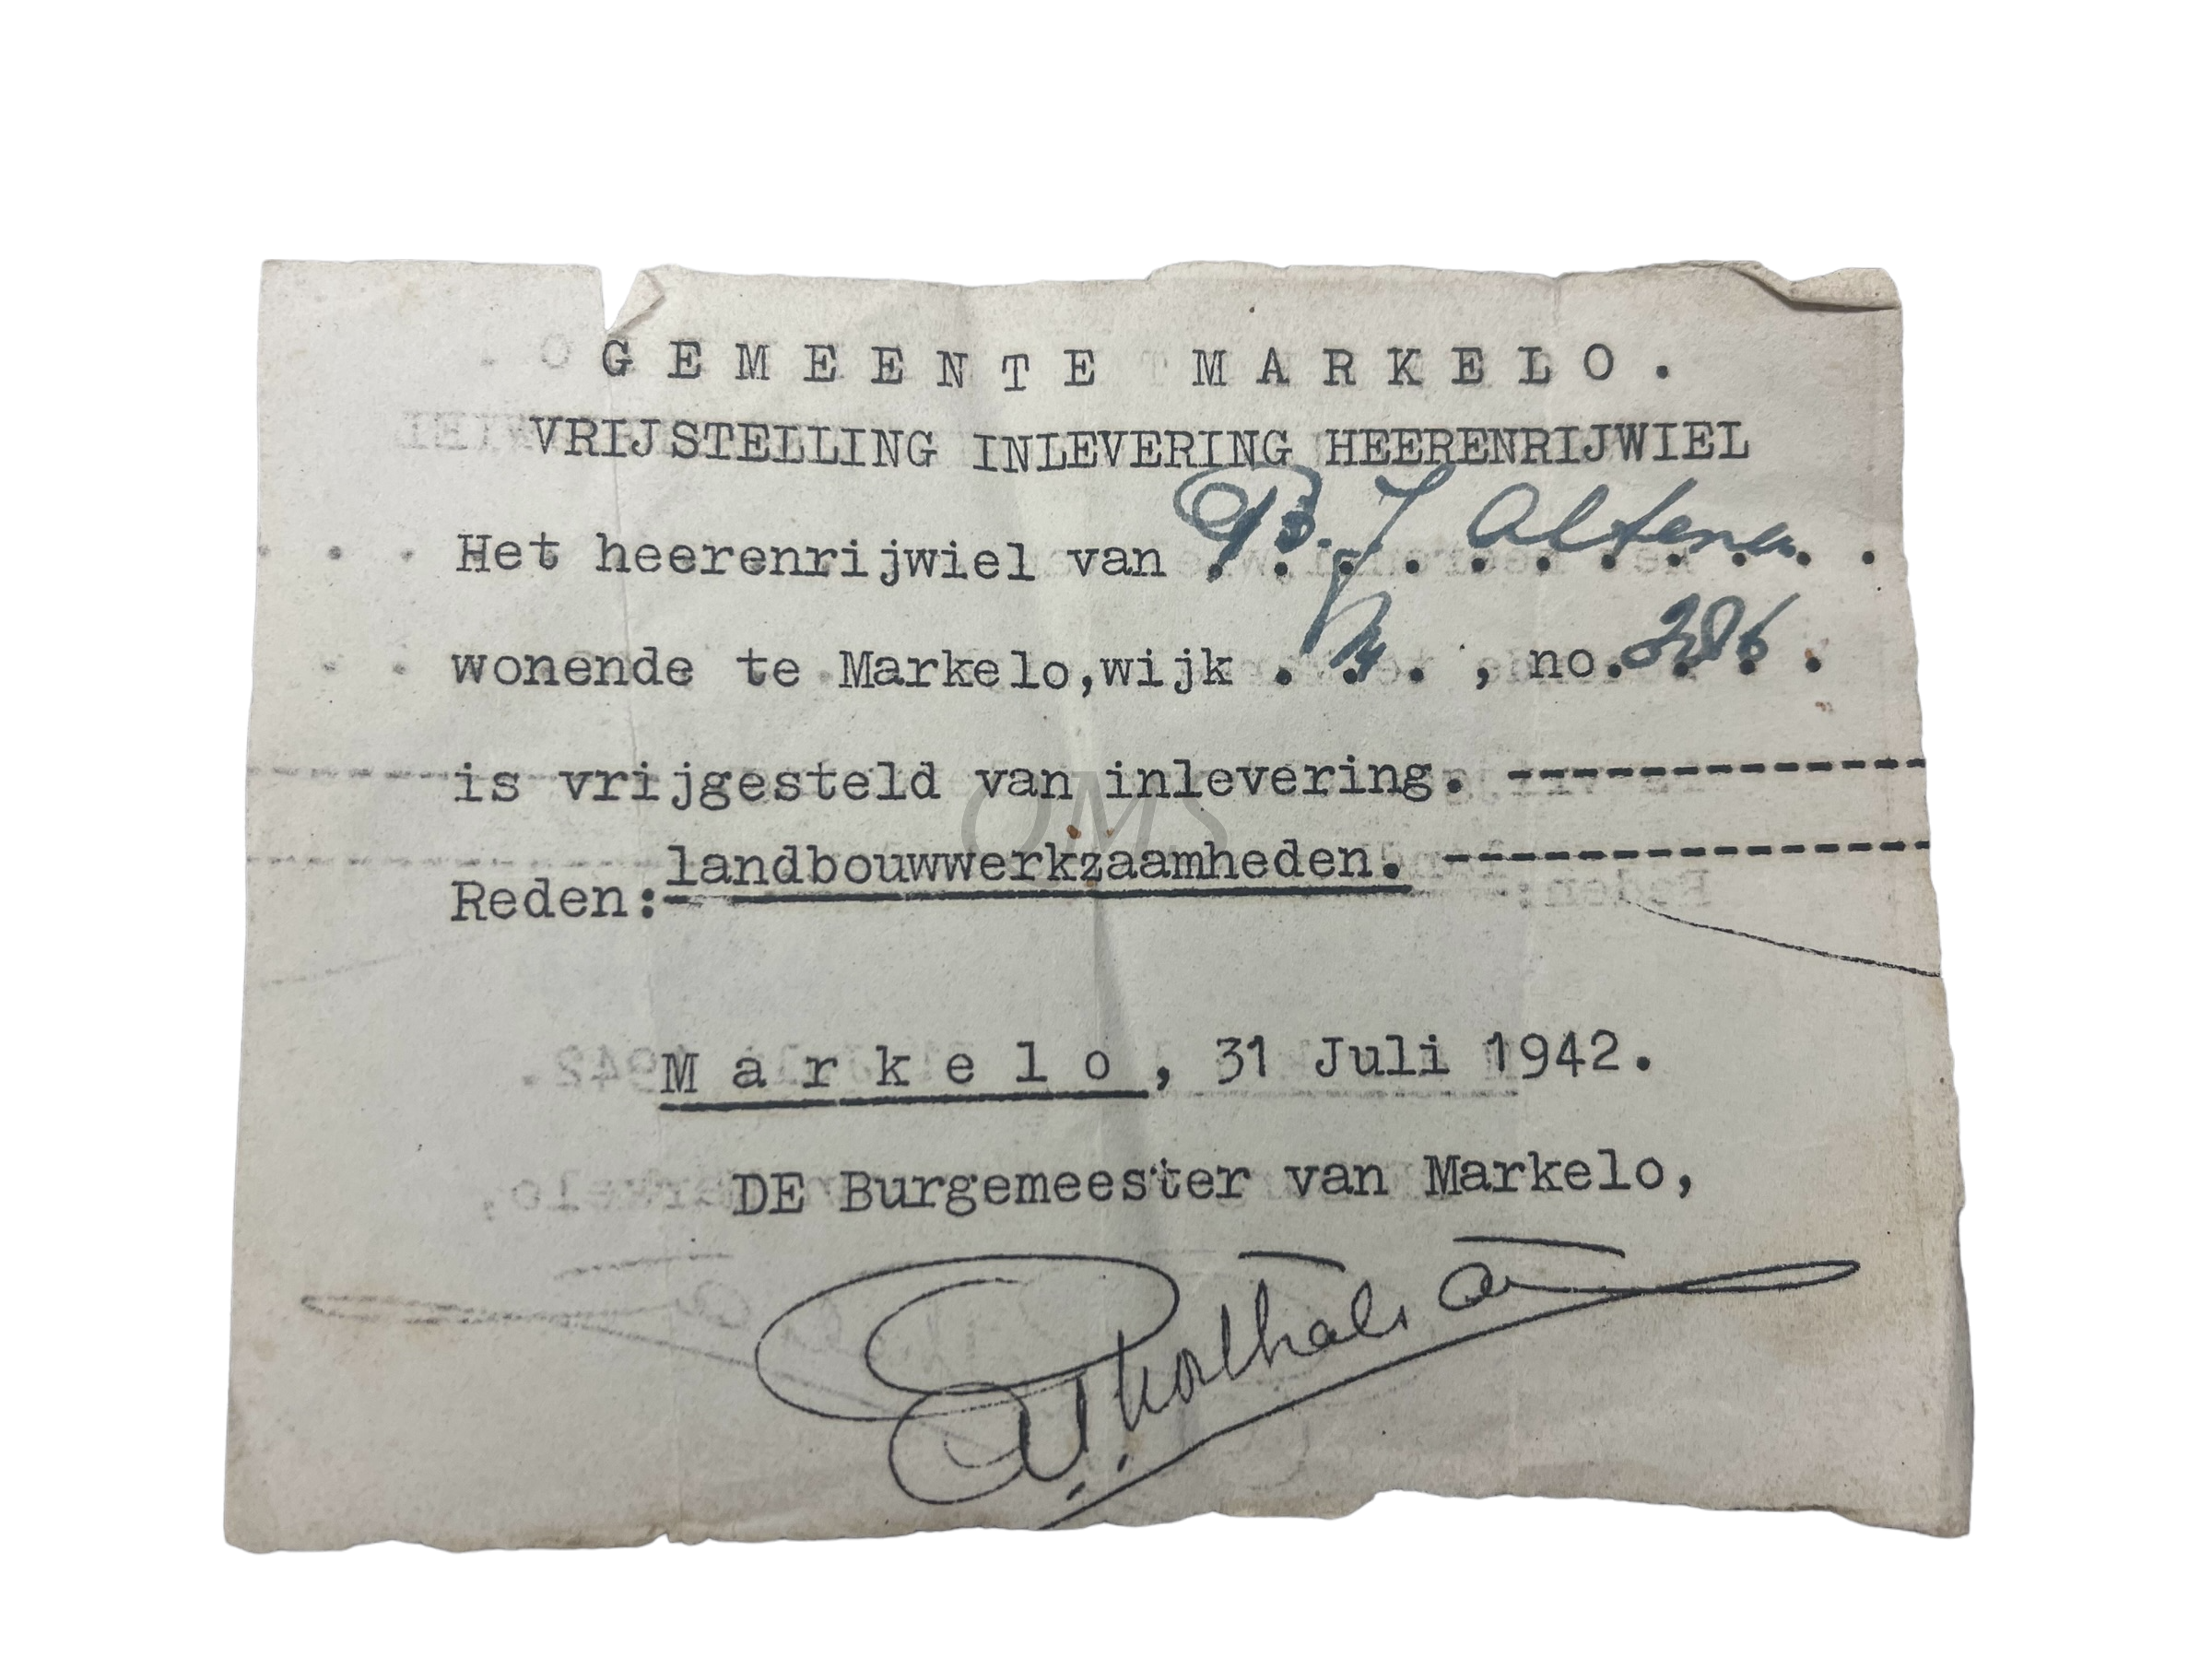 GEMEENTE MARKELO.
VRIJSTELLING INLEVERING HEERENRIJWIEL
Het heerenrijwiel van B. J Altena
wonende te Markelo,wijk . . . , no.
is vrijgesteld van inlevering.--------------
Reden:landbouwwerkzaamheden.----------------
Markelo, 31 Juli 1942.
DE Burgemeester van Markelo,
OMS